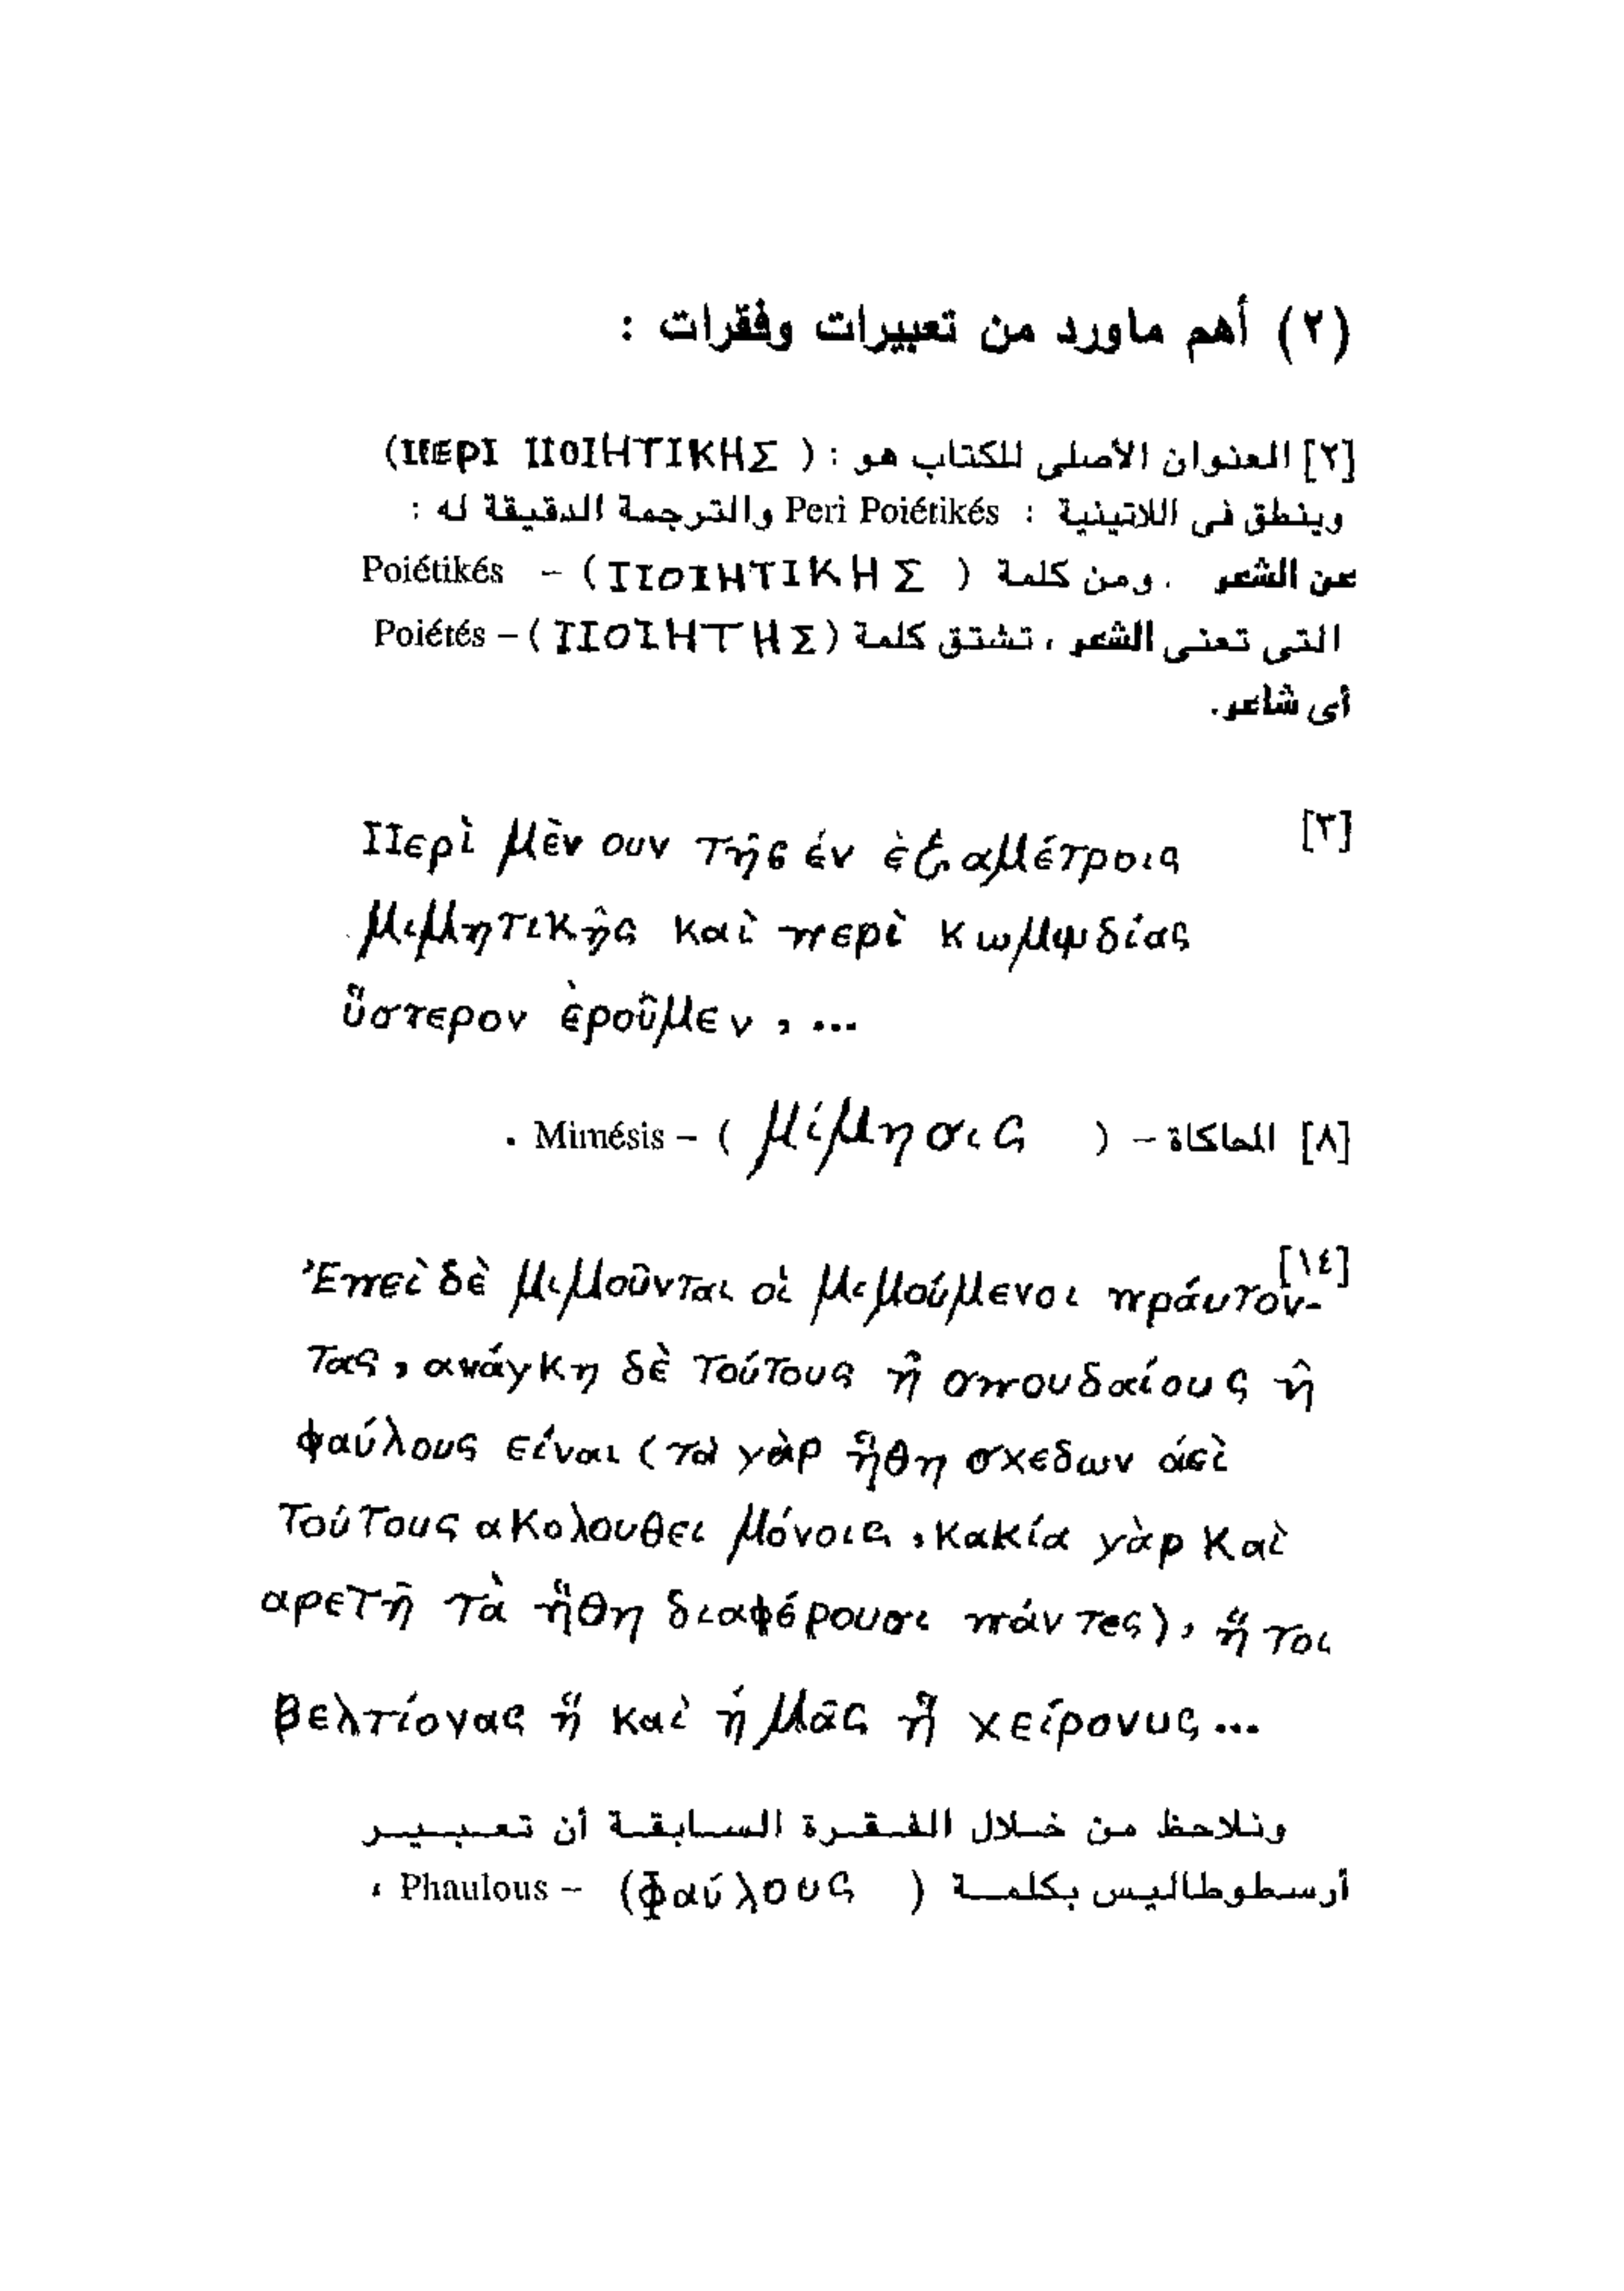 (٢) أهم ماورد من تعبيرات وفقرات :
[٢] العنوان الأصلى للكتاب هو : ( ΠΕΡΙ ΠΟΙΗΤΙΚΗΣ )
وينطق فى اللاتينية : Peri Poiétikés والترجمة الدقيقة له :
عن الشعر . ومن كلمة ( ΠΟΙΗΤΙΚΗΣ ) – Poiétikés
التى تعنى الشعر ، تشتق كلمة (ΠΟΙΗΤΗΣ) – Poiétés
أى شاعر.
[٣] Περὶ μὲν ουν τῆς ἐν ἑξαμέτροις
μιμητικῆς καὶ περὶ κωμῳδίας
ὕστερον ἐροῦμεν , ...
[٨] المحاكاة – ( μίμησις ) – Mimésis .
[١٤] Ἐπεὶ δὲ μιμοῦνται οἱ μιμούμενοι πράυτον-
τας , ανάγκη δὲ τούτους ἢ σπουδαίους ἢ
φαύλους είναι (τὰ γὰρ ἤθη σχεδων ἀεὶ
τούτους ακολουθει μόνοις , κακία γὰρ καὶ
αρετῇ τὰ ἤθη διαφέρουσι πάντες) , ἤ τοι
βελτίονας ἢ καὶ ἡμᾶς ἢ χείρονυς ...
ونلاحظ من خلال الفقرة السابقة أن تعبير
أرسطوطاليس بكلمة ( Φαύλους ) – Phaulous ،